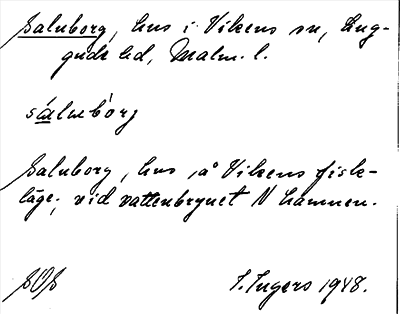 Saluborg, hus i Vikens sn, Lug-
gude hd, Malm. l.
Saluborg, hus å Vikens fisk-
läge, vid vattenbrynet N hamnen.
SOS
I. Ingers 1948.